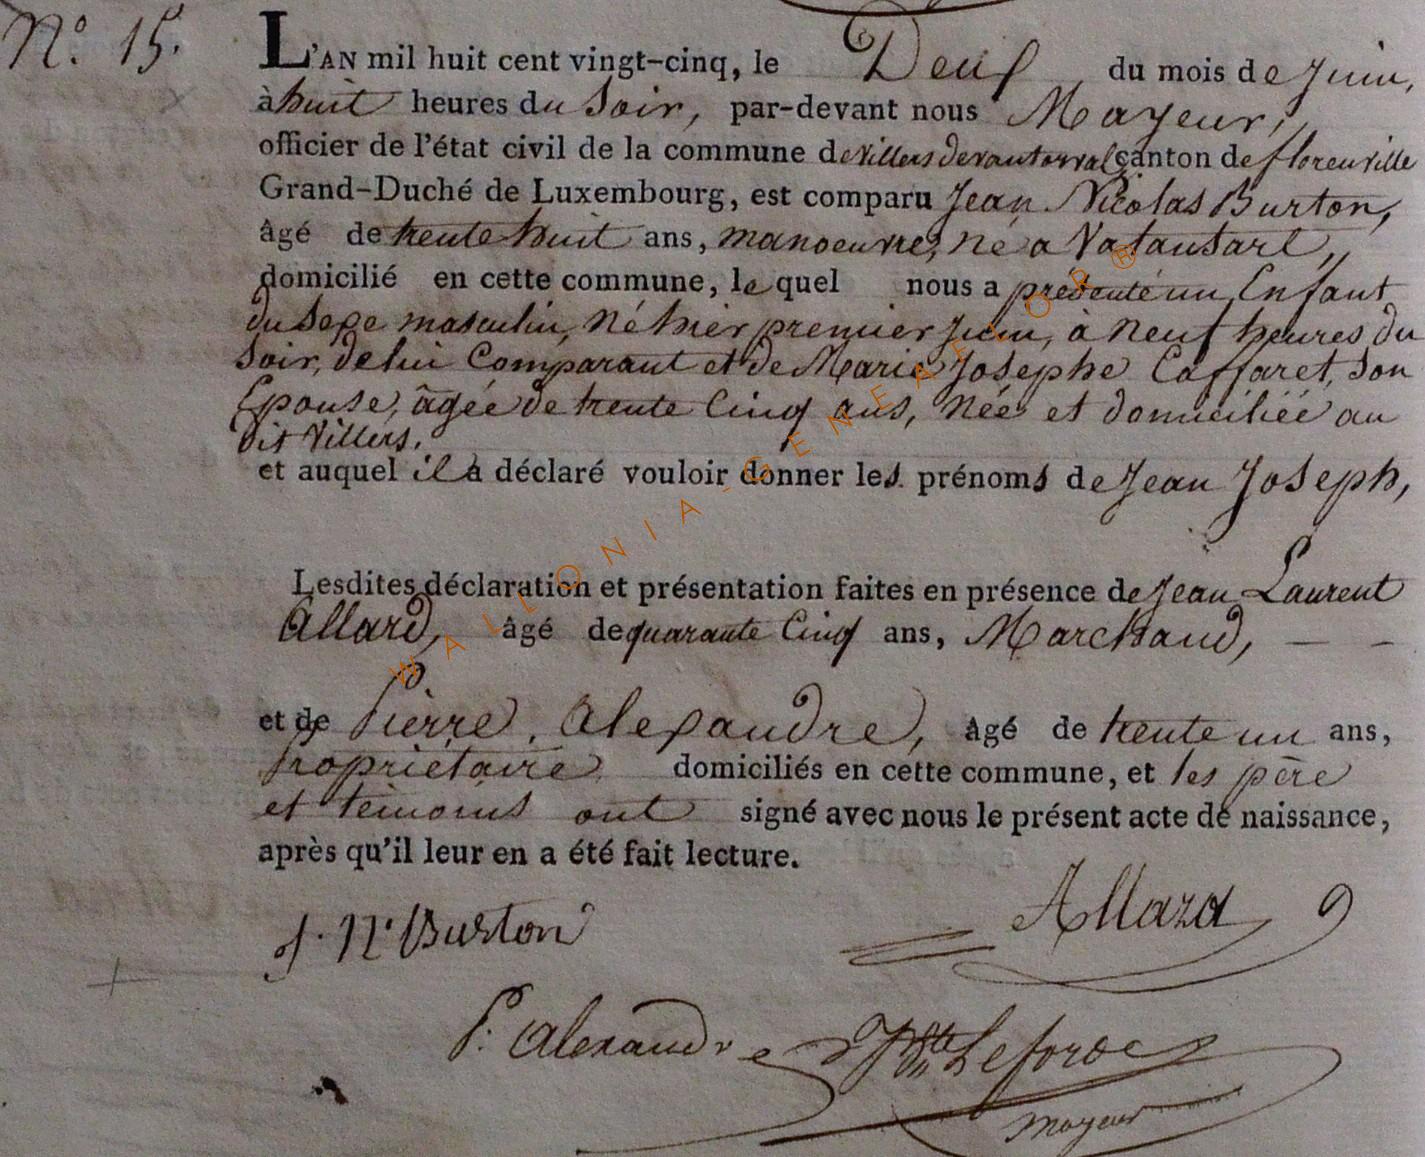 N.º 15.
L'AN mil huit cent vingt-cinq, le Deux du mois de Juin,
à huit heures du Soir, par-devant nous Mayeur,
officier de l'état civil de la commune de Villers devant orval canton de florenville
Grand-Duché de Luxembourg, est comparu Jean Nicolas Burton,
âgé de trente huit ans, manoeuvre, né a Vatansart,
domicilié en cette commune, le quel nous a présenté un Enfant
du Sexe masculin, né hier premier Juin, à neuf heures du
Soir, de lui Comparant et de Marie Josephe Caffaret, Son
Epouse, âgée de trente Cinq ans, née et domiciliée au
dit Villers.
et auquel il a déclaré vouloir donner les prénoms de Jean Joseph,
Lesdites déclaration et présentation faites en présence de Jean Laurent
Allard, âgé de quarante Cinq ans, Marchand,
et de Pierre Alexandre, âgé de trente un ans,
propriétaire domiciliés en cette commune, et les père
et témoins ont signé avec nous le présent acte de naissance,
après qu'il leur en a été fait lecture.
Allard
J. N. Burton
P. Alexandre
mayeur
WALLONIA-GENEALOR®